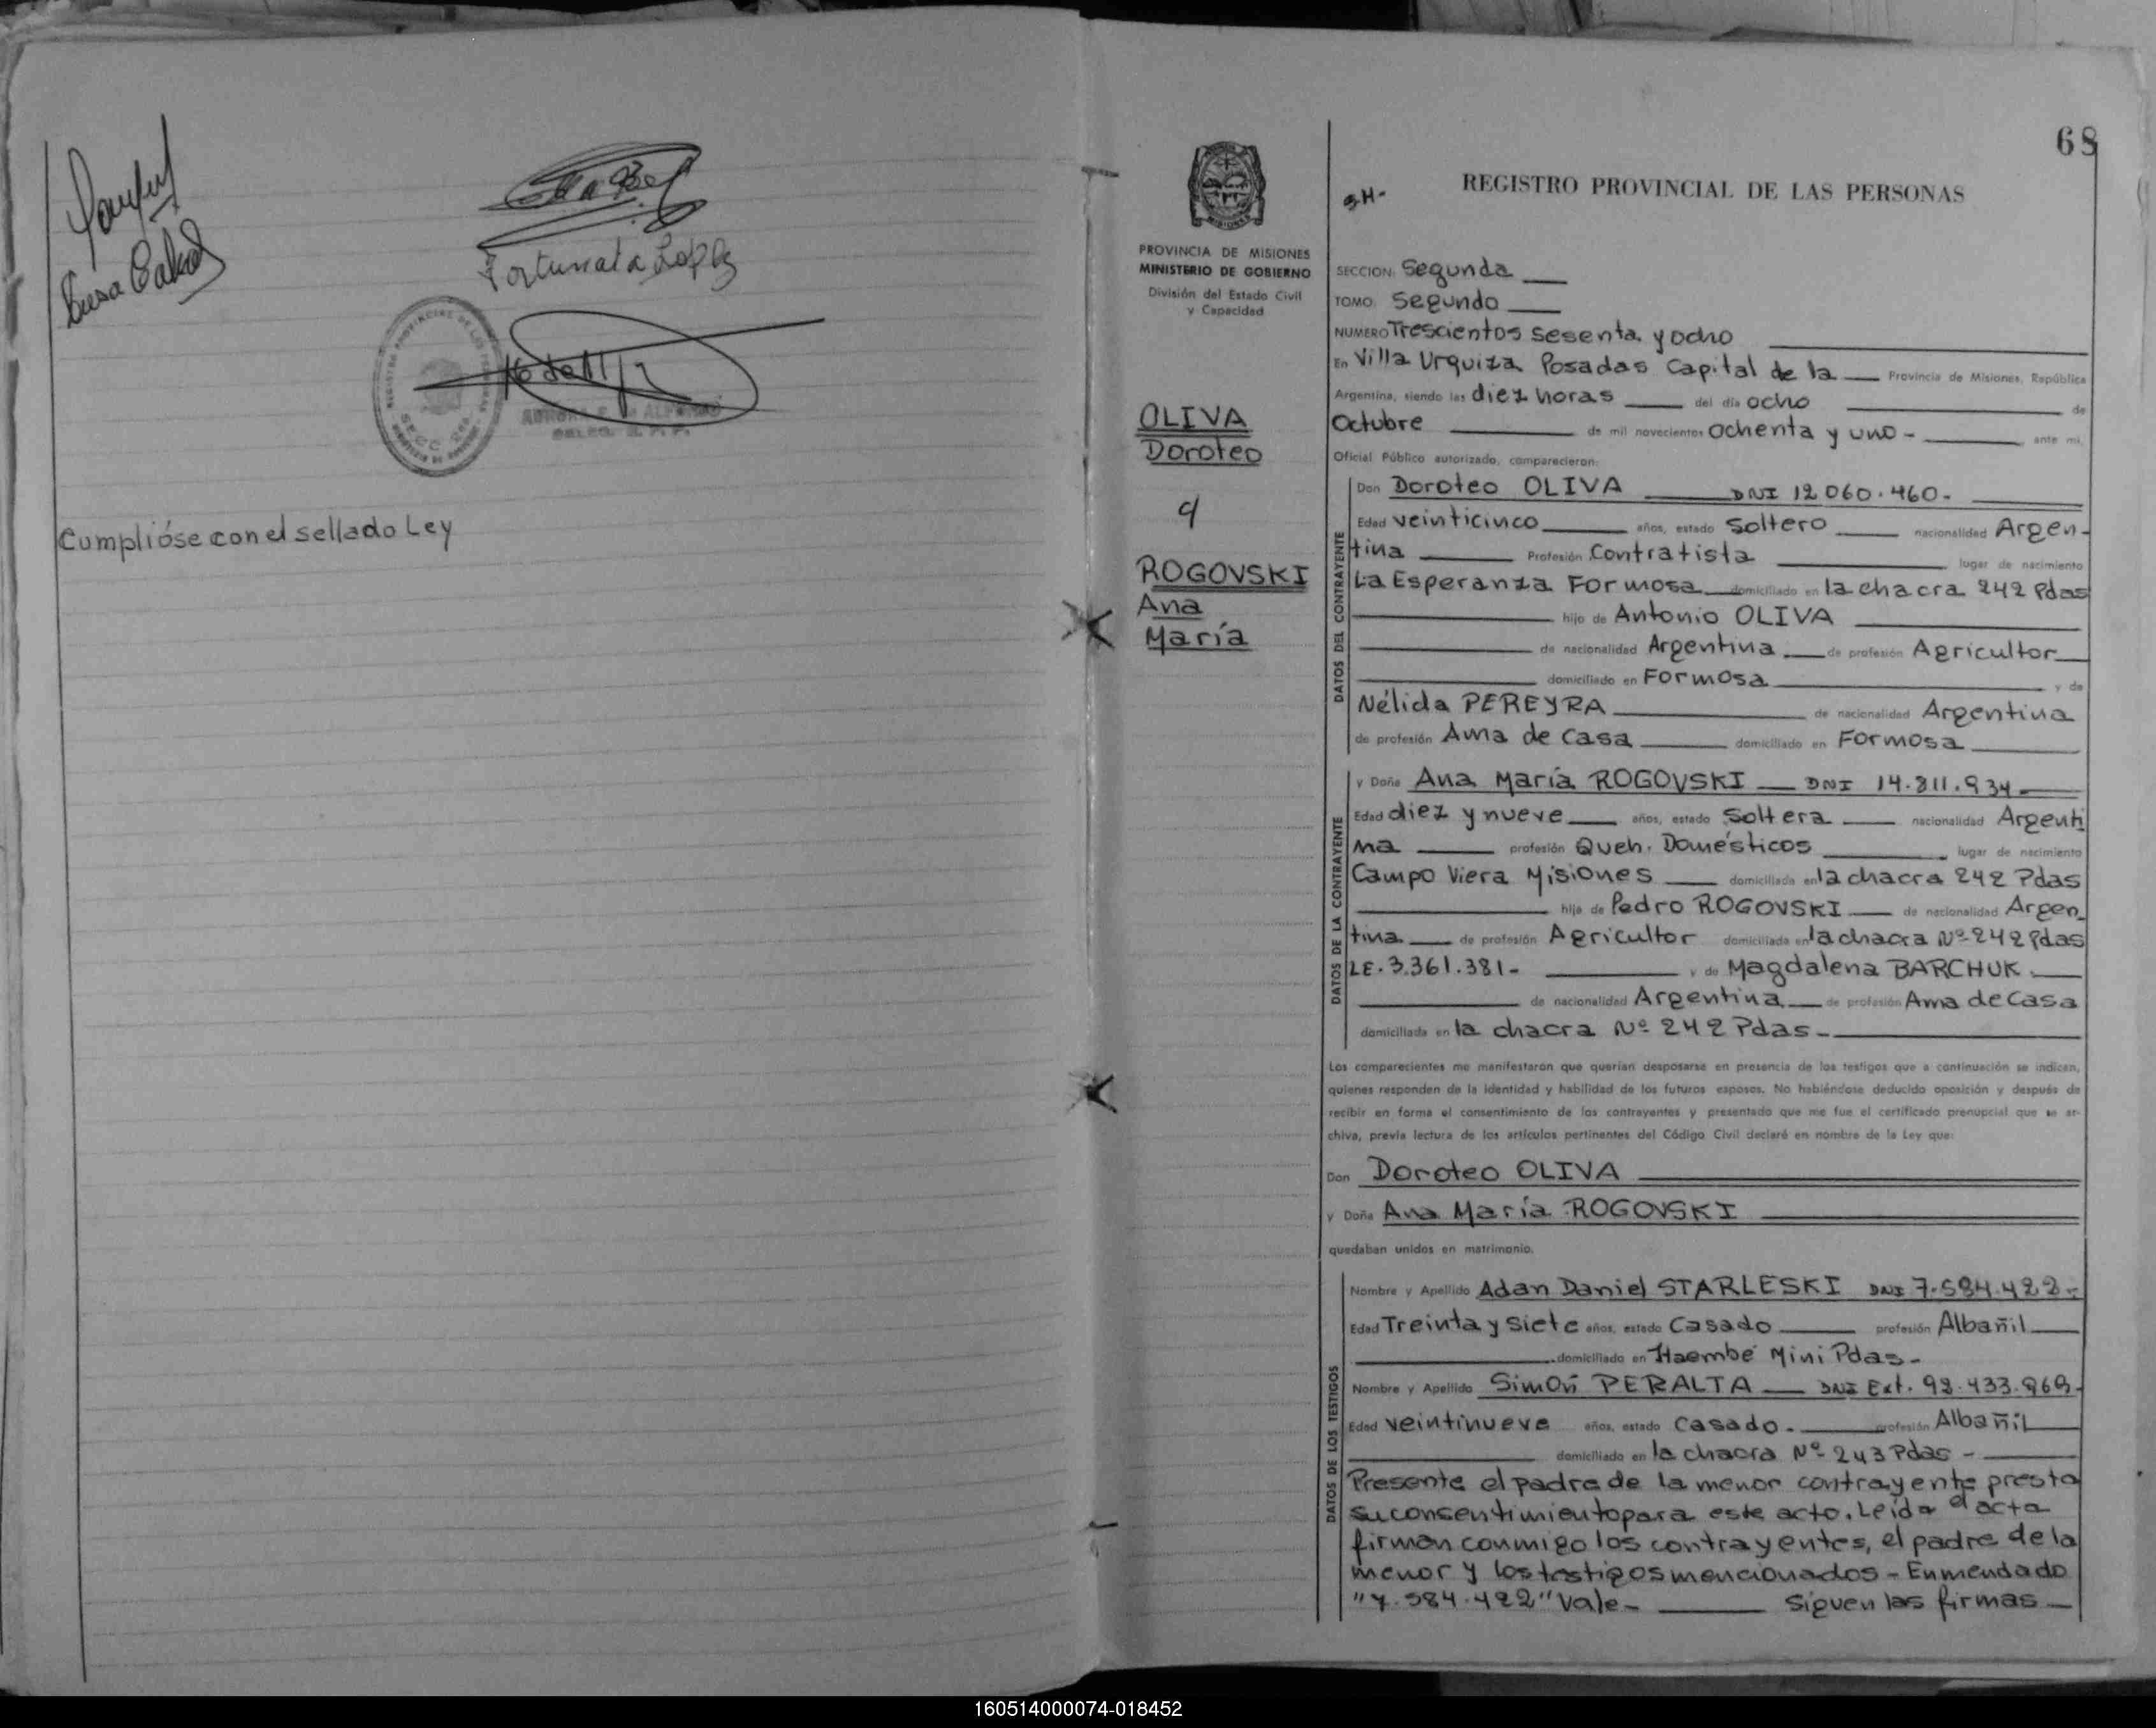 Fortunata Lopez
Cumplióse con el sellado Ley
68
REGISTRO PROVINCIAL DE LAS PERSONAS
PROVINCIA DE MISIONES
MINISTERIO DE GOBIERNO
División del Estado Civil
y Capacidad
OLIVA
Doroteo
ROGOVSKI
Ana
María
SECCION: Segunda
TOMO: Segundo
NUMERO Trescientos sesenta y ocho
En Villa Urquiza Posadas Capital de la Provincia de Misiones, República
Argentina, siendo las diez horas del día ocho de
Octubre de mil novecientos ochenta y uno - ante mí,
Oficial Público autorizado, comparecieron:
DATOS DEL CONTRAYENTE
Don Doroteo OLIVA DNI 12.060.460.
Edad veinticinco años, estado Soltero nacionalidad Argen-
tina Profesión Contratista lugar de nacimiento
La Esperanza Formosa domiciliado en la chacra 242 Pdas
hijo de Antonio OLIVA
de nacionalidad Argentina de profesión Agricultor
domiciliado en Formosa y de
Nélida PEREYRA de nacionalidad Argentina
de profesión Ama de casa domiciliado en Formosa
DATOS DE LA CONTRAYENTE
y Doña Ana María ROGOVSKI DNI 14.811.934.
Edad diez y nueve años, estado Soltera nacionalidad Argenti
na profesión Queh. Domésticos lugar de nacimiento
Campo Viera Misiones domiciliada en la chacra 242 Pdas
hija de Pedro ROGOVSKI de nacionalidad Argen
tina de profesión Agricultor domiciliado en la chacra Nº 242 Pdas
LE. 3.361.381- y de Magdalena BARCHUK.
de nacionalidad Argentina de profesión Ama de Casa
domiciliada en la chacra Nº 242 Pdas-
Los comparecientes me manifestaron que querían desposarse en presencia de los testigos que a continuación se indican,
quienes responden de la identidad y habilidad de los futuros esposos. No habiéndose deducido oposición y después de
recibir en forma el consentimiento de los contrayentes y presentado que me fue el certificado prenupcial que se ar-
chiva, previa lectura de los artículos pertinentes del Código Civil declaré en nombre de la Ley que:
Don Doroteo OLIVA
y Doña Ana María ROGOVSKI
quedaban unidos en matrimonio.
DATOS DE LOS TESTIGOS
Nombre y Apellido Adan Daniel STARLESKI DNI 7.584.422-
Edad Treinta y Siete años, estado Casado profesión Albañil
domiciliado en Itaembé Mini Pdas-
Nombre y Apellido Simón PERALTA DNI Ext. 92.433.969.
Edad veintinueve años, estado Casado. profesión Albañil
domiciliado en la chacra Nº 243 Pdas-
Presente el padre de la menor contrayente presta
su consentimiento para este acto. Leída el acta
firman conmigo los contrayentes, el padre de la
menor y los testigos mencionados - Enmendado
"7.584.422" Vale- Siguen las firmas
160514000074-018452